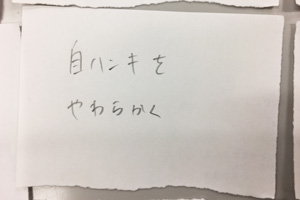 自ハンキを
やわらかく